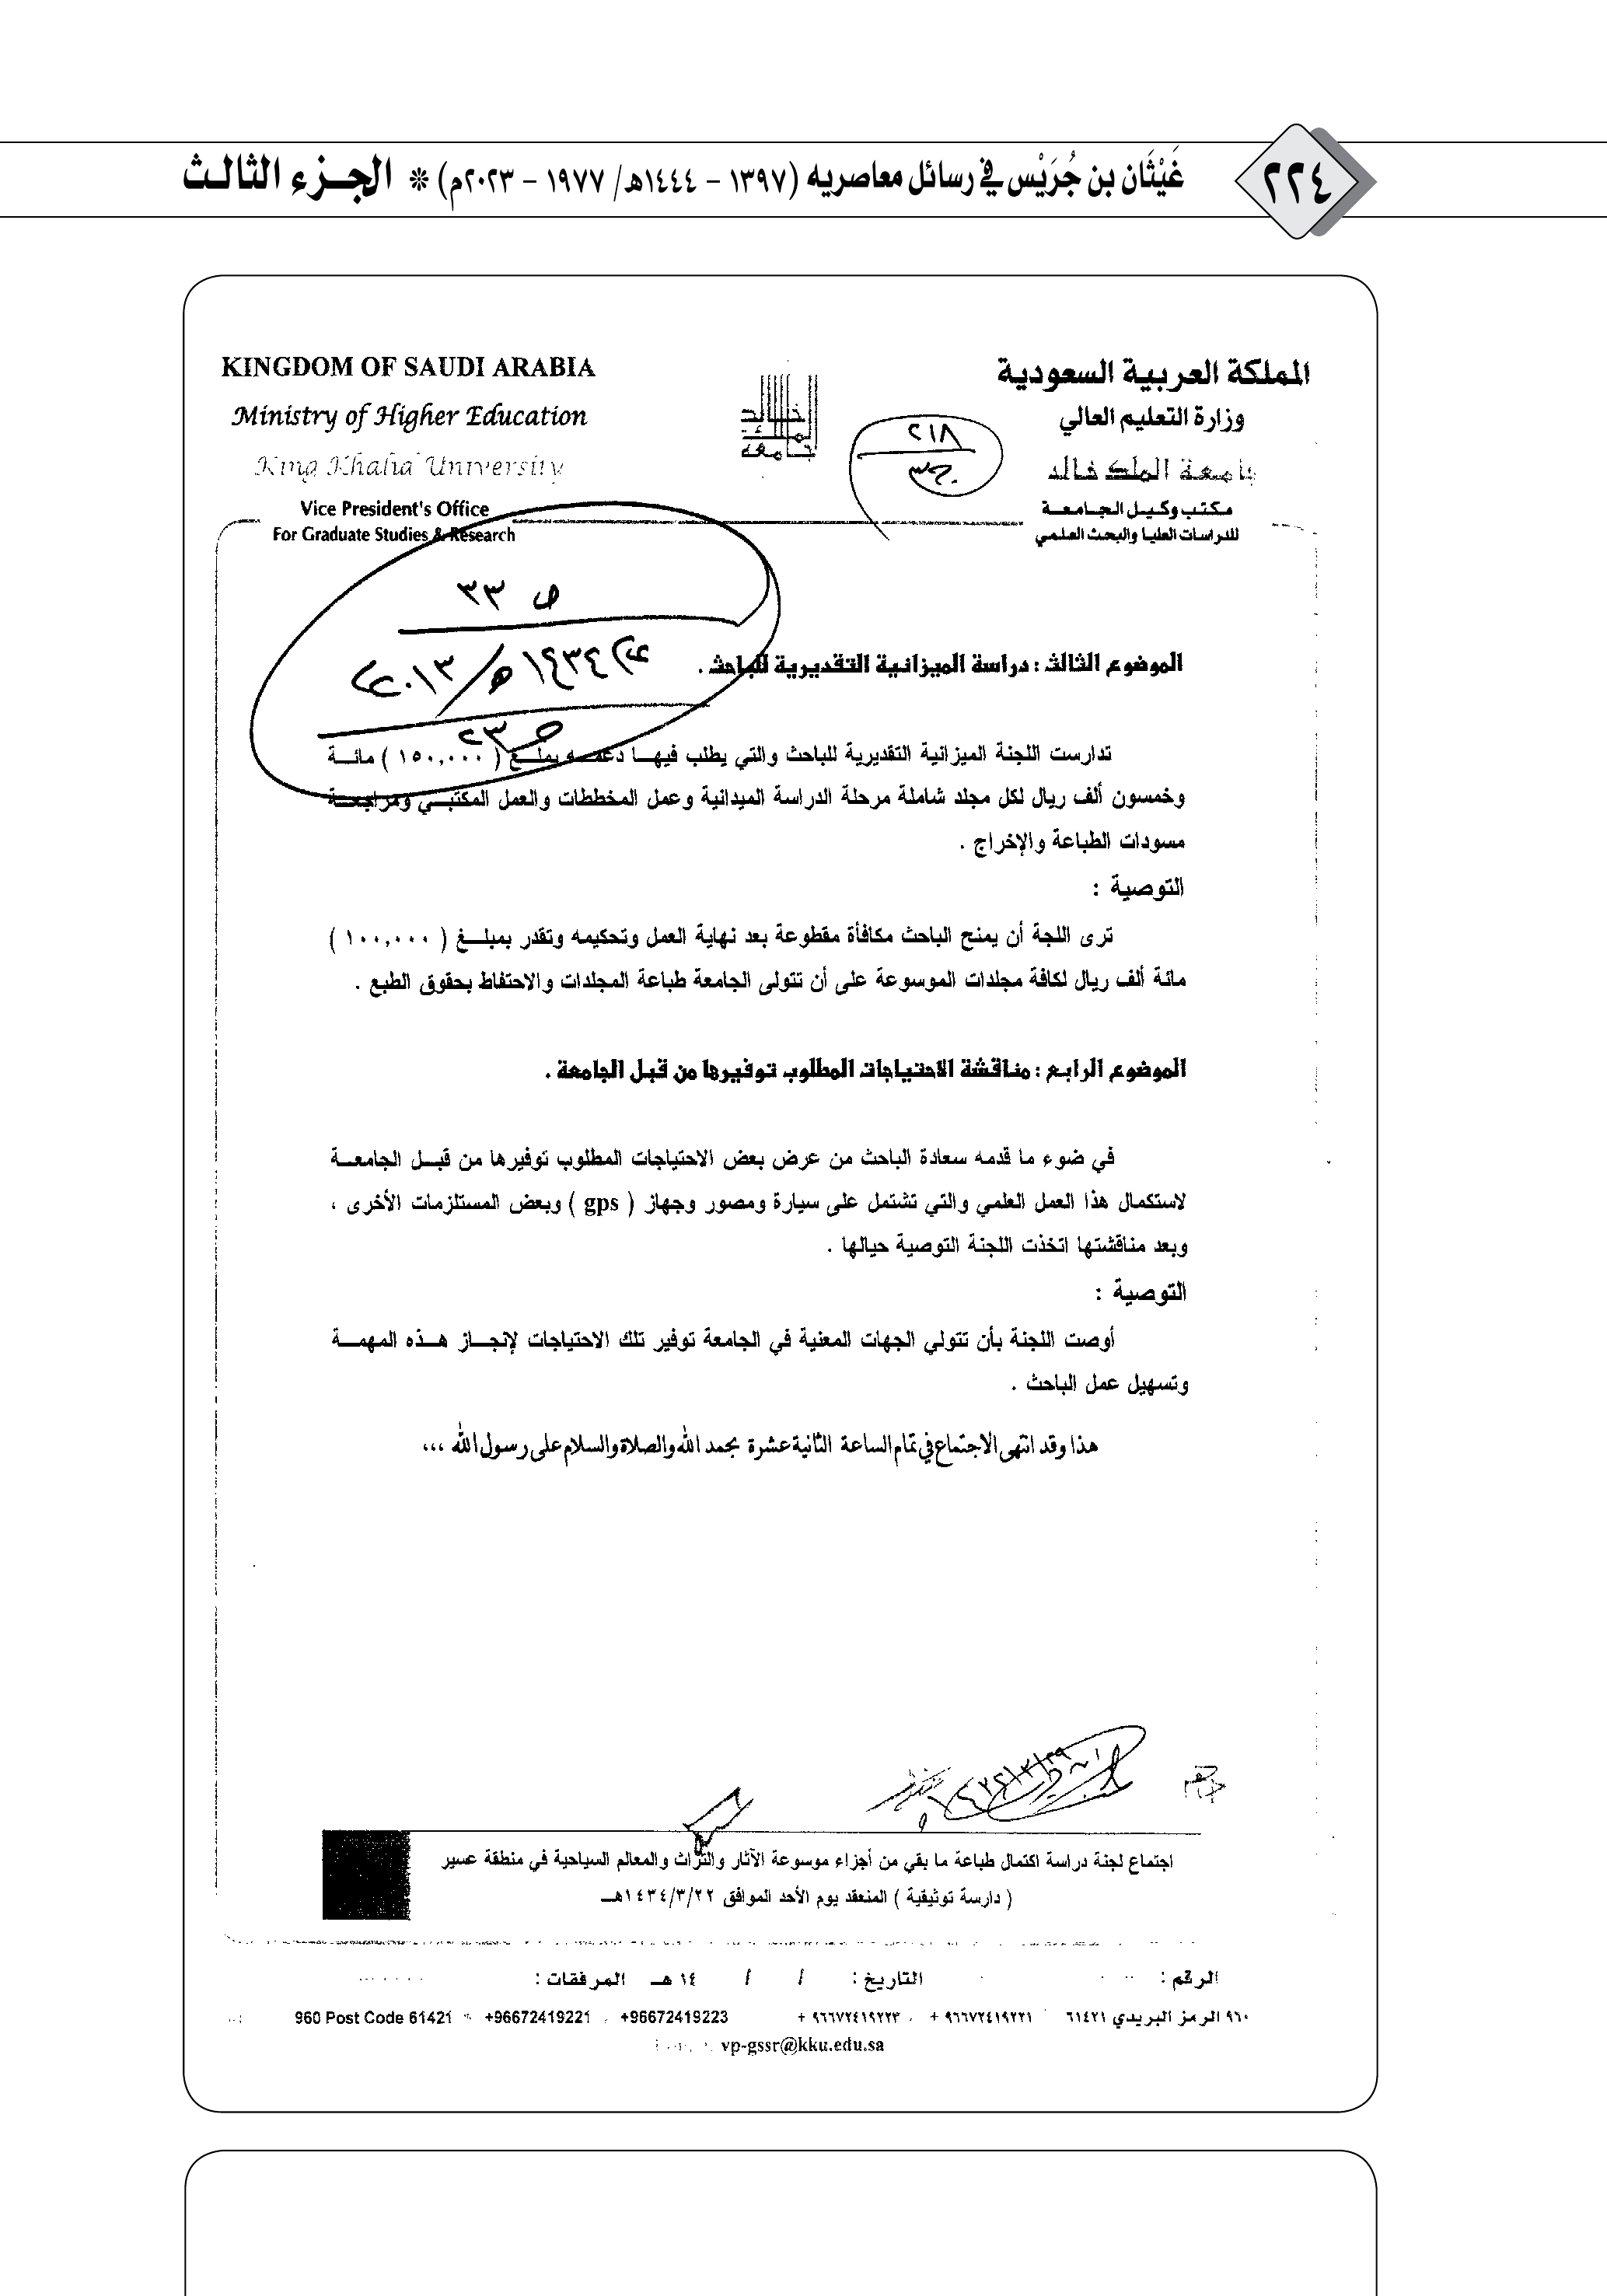 ٢٢٤
غَيْثَان بن جُرَيْس في رسائل معاصريه (١٣٩٧ – ١٤٤٤هـ/ ١٩٧٧ – ٢٠٢٣م) * الجزء الثالث
المملكة العربية السعودية
وزارة التعليم العالي
جامعة الملك خالد
مكتب وكيل الجامعة
للدراسات العليا والبحث العلمي
جامعة الملك خالد
KINGDOM OF SAUDI ARABIA
Ministry of Higher Education
King Khalid University
Vice President's Office
For Graduate Studies & Research
٢١٨
ص ٣٣
١٤٣٤هـ/٢٠١٣
الموضوع الثالث : دراسة الميزانية التقديرية للباحث .
تدارست اللجنة الميزانية التقديرية للباحث والتي يطلب فيها دعمه بمبلغ ( ١٥٠,٠٠٠ ) مائة
وخمسون ألف ريال لكل مجلد شاملة مرحلة الدراسة الميدانية وعمل المخططات والعمل المكتبي ومراجعة
مسودات الطباعة والإخراج .
التوصية :
ترى اللجة أن يمنح الباحث مكافأة مقطوعة بعد نهاية العمل وتحكيمه وتقدر بمبلغ ( ١٠٠,٠٠٠ )
مائة ألف ريال لكافة مجلدات الموسوعة على أن تتولى الجامعة طباعة المجلدات والاحتفاط بحقوق الطبع .
الموضوع الرابع : مناقشة الاحتياجات المطلوب توفيرها من قبل الجامعة .
في ضوء ما قدمه سعادة الباحث من عرض بعض الاحتياجات المطلوب توفيرها من قبل الجامعة
لاستكمال هذا العمل العلمي والتي تشتمل على سيارة ومصور وجهاز ( gps ) وبعض المستلزمات الأخرى ،
وبعد مناقشتها اتخذت اللجنة التوصية حيالها .
التوصية :
أوصت اللجنة بأن تتولي الجهات المعنية في الجامعة توفير تلك الاحتياجات لإنجاز هذه المهمة
وتسهيل عمل الباحث .
هذا وقد انتهى الاجتماع في تمام الساعة الثانية عشرة بحمد الله والصلاة والسلام على رسول الله ،،،
اجتماع لجنة دراسة اكتمال طباعة ما بقي من أجزاء موسوعة الآثار والتراث والمعالم السياحية في منطقة عسير
( دارسة توثيقية ) المنعقد يوم الأحد الموافق ١٤٣٤/٣/٢٢هـ
الرقم : التاريخ : / / ١٤ هـ المرفقات :
٩٦٠ الرمز البريدي ٦١٤٢١ ٩٦٦٧٢٤١٩٢٢١ + ٩٦٦٧٢٤١٩٢٢٣ + +96672419223 +96672419221 960 Post Code 61421
vp-gssr@kku.edu.sa